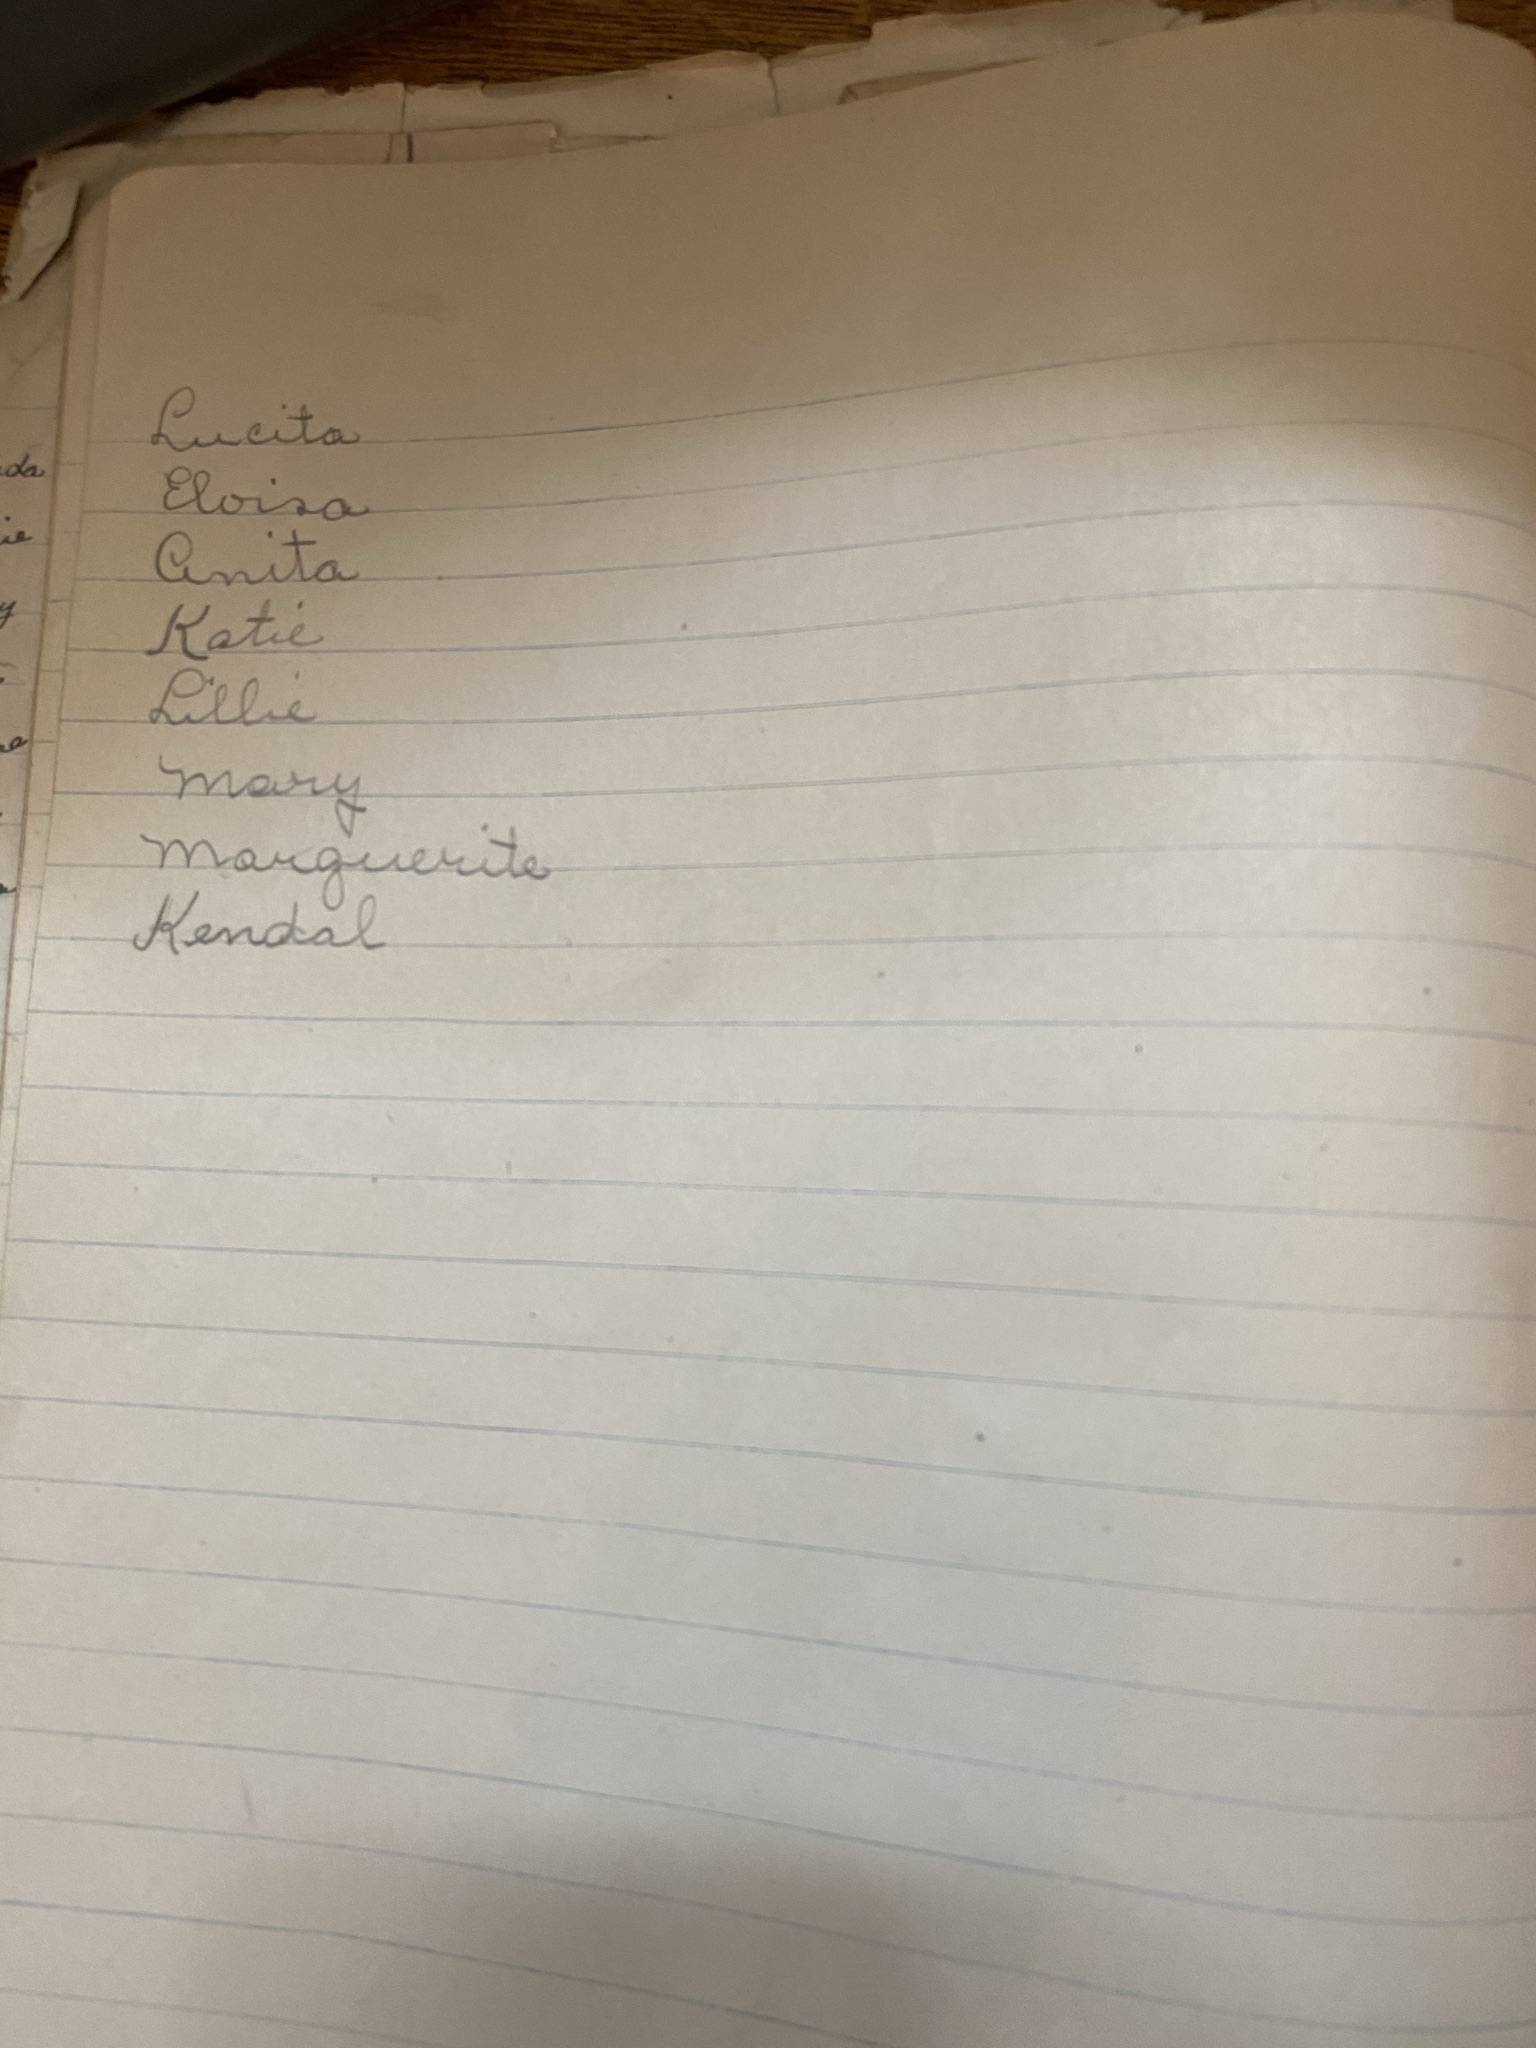 Lucita
Eloisa
Anita
Katie
Lillie
Mary
Marguerite
Kendal